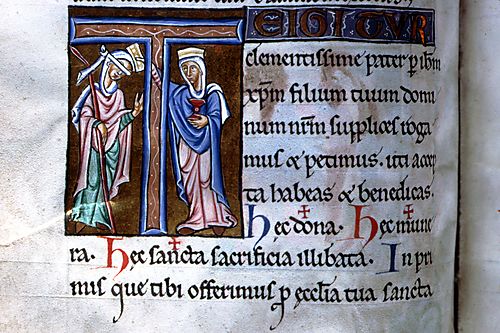 TE IGITUR
clementissime pater p ihm
xpm filium tuum domi
num nrm supplices roga
mus & petimus. uti accep
ta habeas & benedicas.
hec dona. hec mune
ra. hec sancta sacrificia illibata. In pri
mis que tibi offerimus p ecclia tua sancta